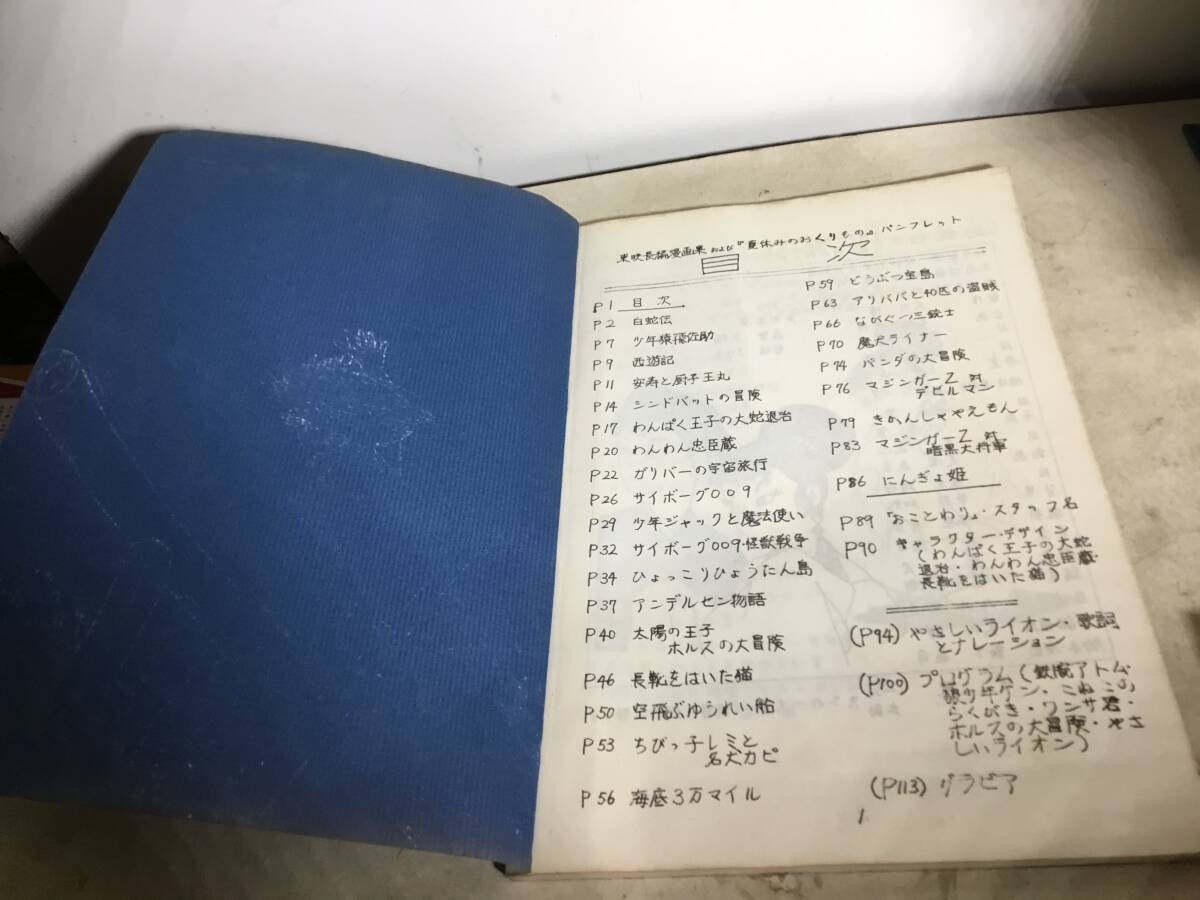 東映長編漫画集および『夏休みのおくりもの』パンフレット
目次
P1 目次
P2 白蛇伝
P7 少年猿飛佐助
P9 西遊記
P11 安寿と厨子王丸
P14 シンドバットの冒険
P17 わんぱく王子の大蛇退治
P20 わんわん忠臣蔵
P22 ガリバーの宇宙旅行
P26 サイボーグ009
P29 少年ジャックと魔法使い
P32 サイボーグ009・怪獣戦争
P34 ひょっこりひょうたん島
P37 アンデルセン物語
P40 太陽の王子
ホルスの大冒険
P46 長靴をはいた猫
P50 空飛ぶゆうれい船
P53 ちびっ子レミと
名犬カピ
P56 海底3万マイル
P59 どうぶつ宝島
P63 アリババと40匹の盗賊
P66 ながぐつ三銃士
P70 魔犬ライナー
P74 パンダの大冒険
P76 マジンガーZ 対
デビルマン
P79 きかんしゃやえもん
P83 マジンガーZ 対
暗黒大将軍
P86 にんぎょ姫
P89 「おことわり」・スタッフ名
P90 キャラクター・デザイン
(わんぱく王子の大蛇
退治・わんわん忠臣蔵・
長靴をはいた猫)
(P94) やさしいライオン・歌詞
とナレーション
(P100) プログラム(鉄腕アトム・
狼少年ケン・こねこの
らくがき・ワンサ君・
ホルスの大冒険・やさ
しいライオン)
(P113) グラビア
1